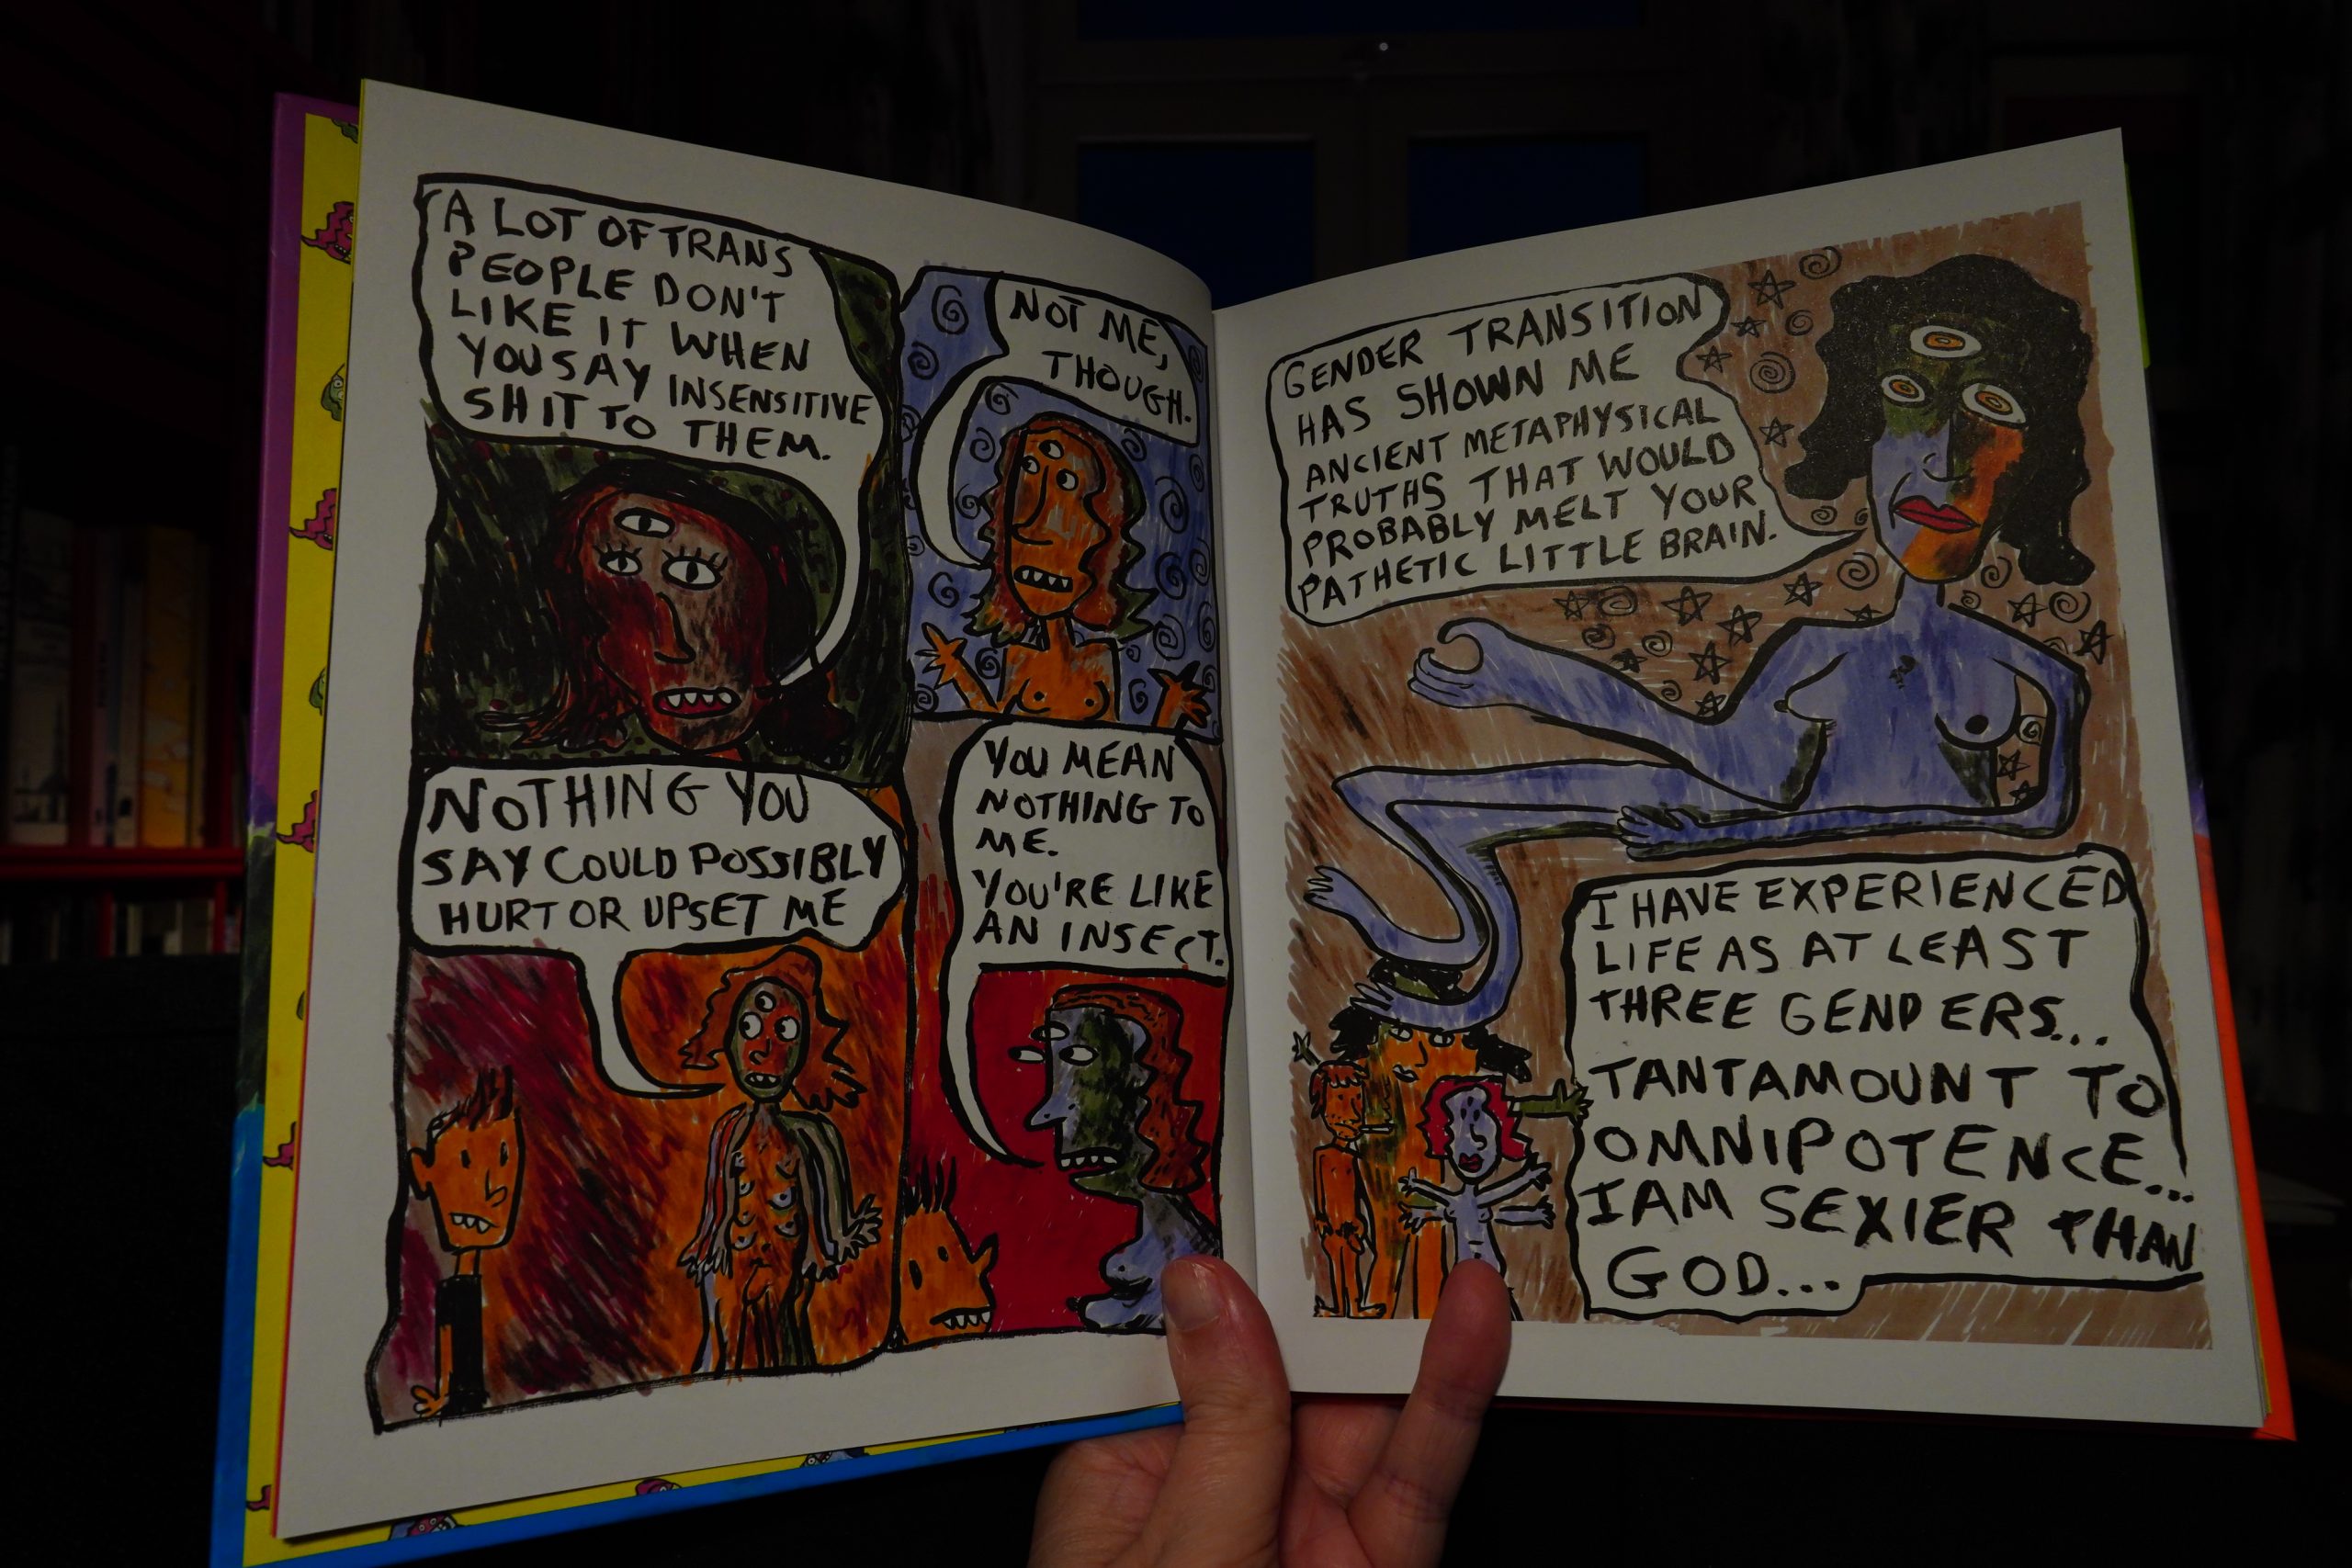 A LOT OF TRANS
PEOPLE DON'T
LIKE IT WHEN
YOU SAY INSENSITIVE
SHIT TO THEM.
NOT ME,
THOUGH.
NOTHING YOU
SAY COULD POSSIBLY
HURT OR UPSET ME
YOU MEAN
NOTHING TO
ME.
YOU'RE LIKE
AN INSECT.
GENDER TRANSITION
HAS SHOWN ME
ANCIENT METAPHYSICAL
TRUTHS THAT WOULD
PROBABLY MELT YOUR
PATHETIC LITTLE BRAIN.
I HAVE EXPERIENCED
LIFE AS AT LEAST
THREE GENDERS...
TANTAMOUNT TO
OMNIPOTENCE...
I AM SEXIER THAN
GOD...